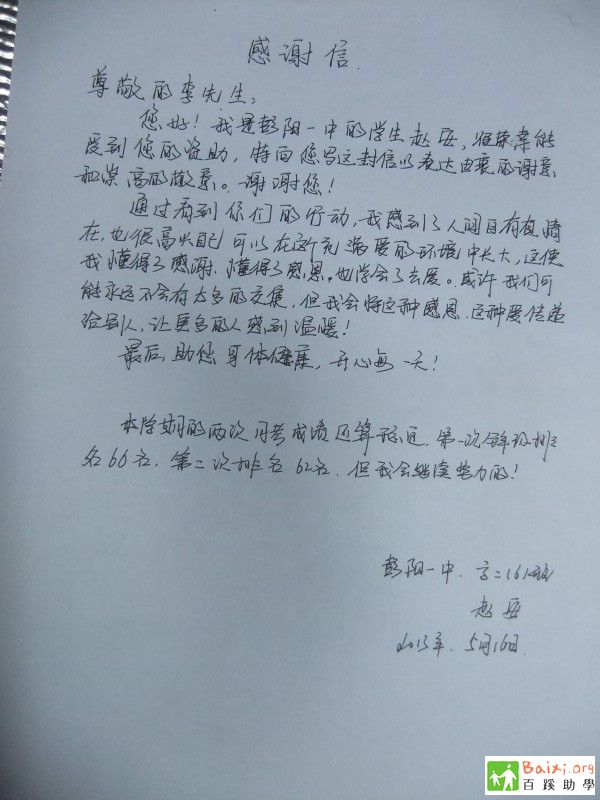 感谢信.
尊敬的李先生,
您好！我是彭阳一中的学生赵，很荣幸能
受到您的资助，特向您写这封信以表达由衷的谢意
和崇高的敬意。谢谢您！
通过看到你们的行动，我感到了人间自有真情
在,也很高兴自己可以在这个充满爱的环境中长大,这使
我懂得了感谢.懂得了感恩,也学会了去爱。或许我们可
能永远不会有太多的交集.但我会将这种感恩.这种爱传递
给别人,让更多的人感到温暖！
最后,助您身体健康，开心每一天！
本学期的两次月考成绩还算,第一次年级排
名66名.第二次排名62名.但我会继续努力的！
彭阳一中.高二(6)班
赵
2013年.5月16日.
Baixi.org
百蹊助學